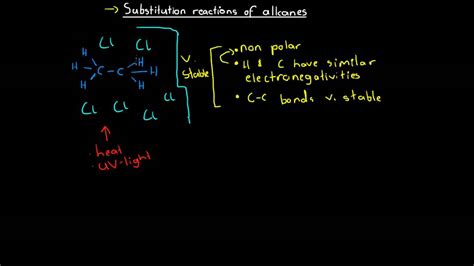 → Substitution reactions of alkanes
Cl Cl
H H
H C - C H
H H
Cl Cl Cl Cl
V.
stable
• non polar
• H & C have similar
electronegativities
• C-C bonds v. stable
• heat
• UV-light